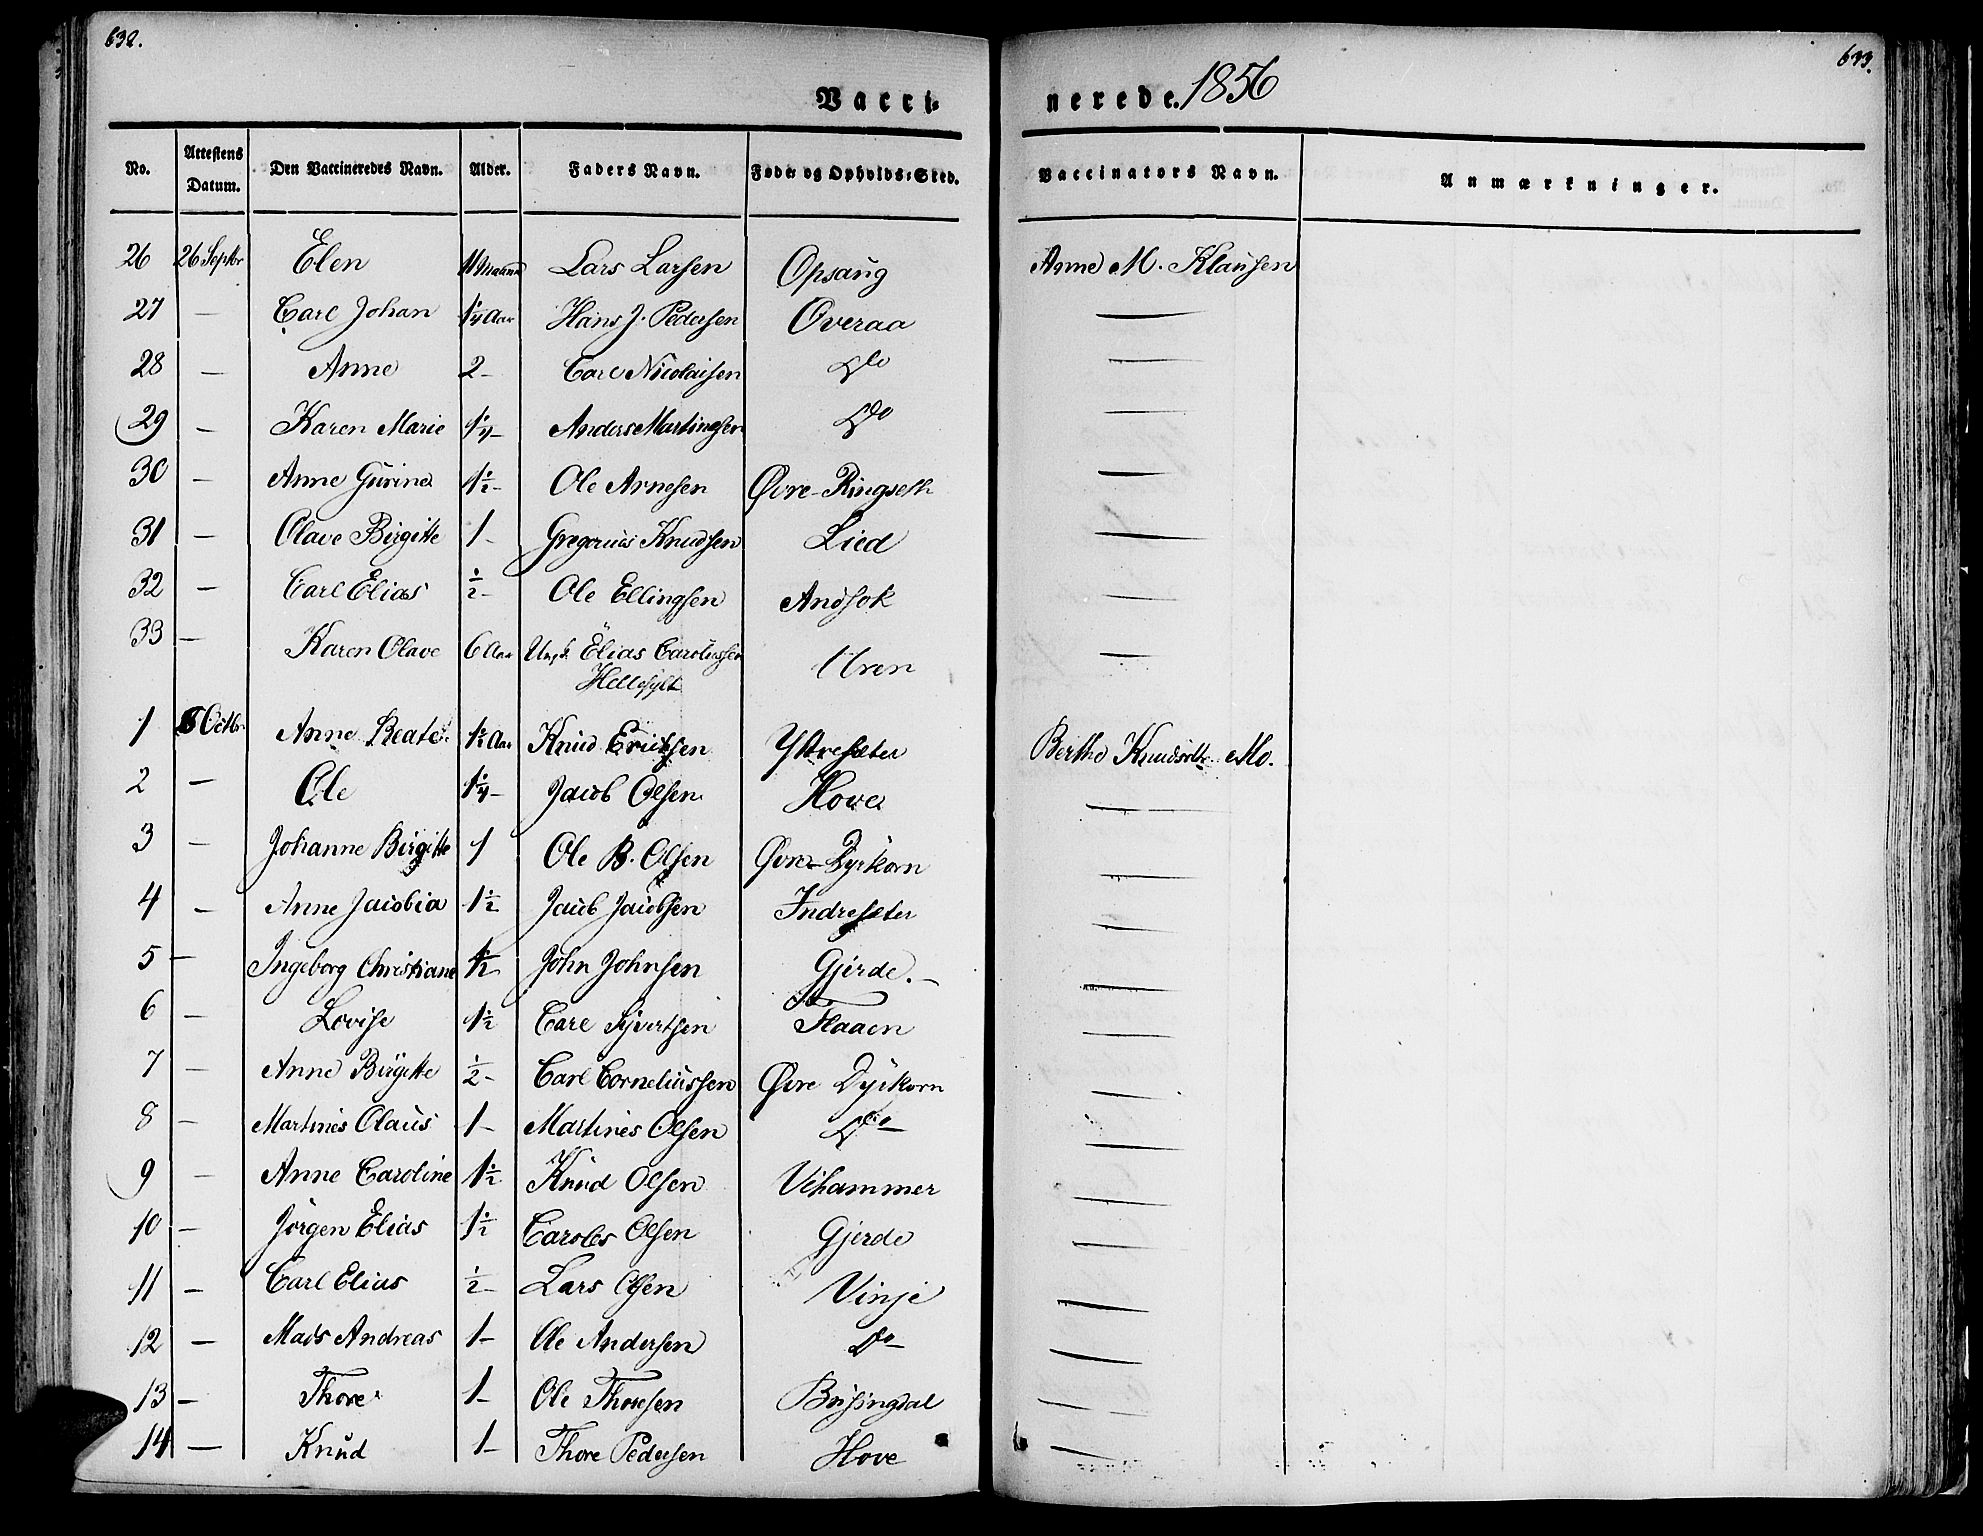 632.
Vacci-
nerede. 1856
633.
No. Attestens Datum. Den Vaccineredes Navn. Alder. Faders Navn. Føde og Opholds-Sted. Vaccinators Navn. Anmærkninger.
26 26 Septbr Elen 11 Lars Larsen Opsaug Anne M. Klausen
27 — Carl Johan 1 1/4 Aar Hans J. Pedersen Overaa —
28 — Anne 2 - Carl Nicolaisen Do —
29 — Karen Marie 1 1/4 - Anders Martinsen Do —
30 — Anne Gurine 1 1/2 - Ole Arnesen Øvre-Ringseth —
31 — Olave Birgitte 1 - Gregorius Knudsen Lied —
32 — Carl Elias 1/2 - Ole Ellingsen Andsok —
33 — Karen Olave 6 Aar Elias Carolussen Uren —
Hellesylt
1 8 Octbr Anne Beate 1 1/2 Aar Knud Eriksen Ytresæter Berthe Knudsdtr Mo.
2 — Ole 1 1/4 - Jacob Olsen Hove —
3 — Johanne Birgitte 1 Ole B. Olsen Øvre-Dyrkorn —
4 — Anne Jacobia 1 1/2 Jacob Jacobsen Indresæter —
5 — Ingeborg Christiane 1 1/2 John Johnsen Gjerde. —
6 — Lovise 1 1/2 Carl Sjvertsen Flaaen —
7 — Anne Birgitte 1/2 - Carl Corneliussen Øvre Dyrkorn —
8 — Martines Olaus 1 - Martines Olsen Do —
9 — Anne Caroline 1 1/2 Knud Olsen Vihammer —
10 — Jörgen Elias 1 1/2 Carolus Olsen Gjerde —
11 — Carl Elias 1/2 - Lars Olsen Vinje —
12 — Mads Andreas 1 - Ole Andersen Do —
13 — Thore 1 - Ole Thoresen Brusingdal —
14 — Knud 1 - Thore Pedersen Hove —